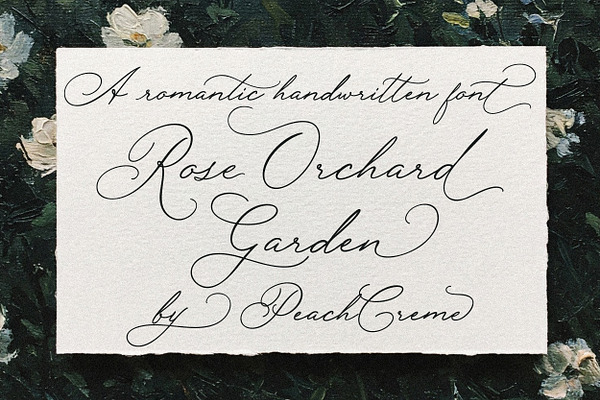 A romantic handwritten font
Rose Orchard
Garden
by PeachCreme